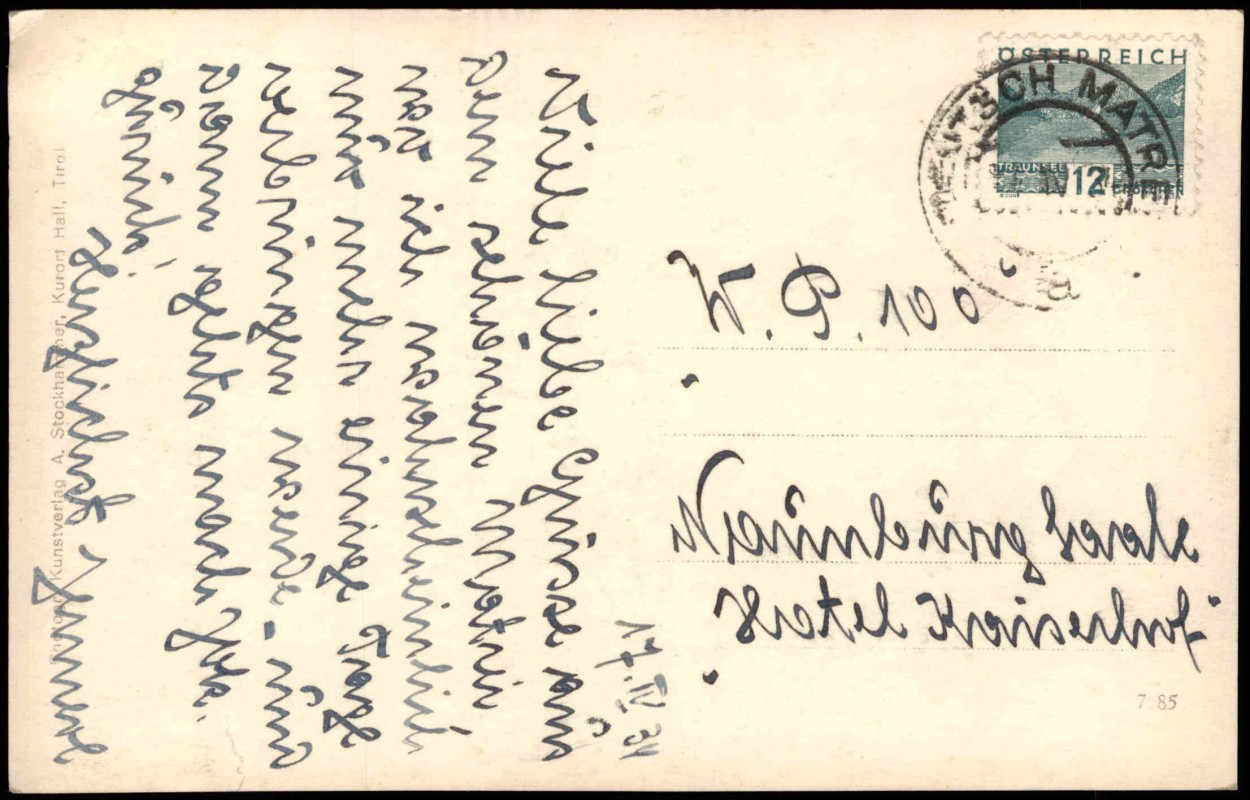 ÖSTERREICH
TRAUNSEE 12 GROSCHEN
DEUTSCH MATREI
17. IV 34
Viele liebe Grüsse aus
dem schönen Matrei
wo ich wahrscheinlich
nur mehr einige Tage
verbringen werde - und
dann gehts nach
Herzlichst
W. P. 100
Naumburg Saale
Hotel Kaiserhof
7 85
Kunstverlag A. Stockhammer, Kurort Hall, Tirol